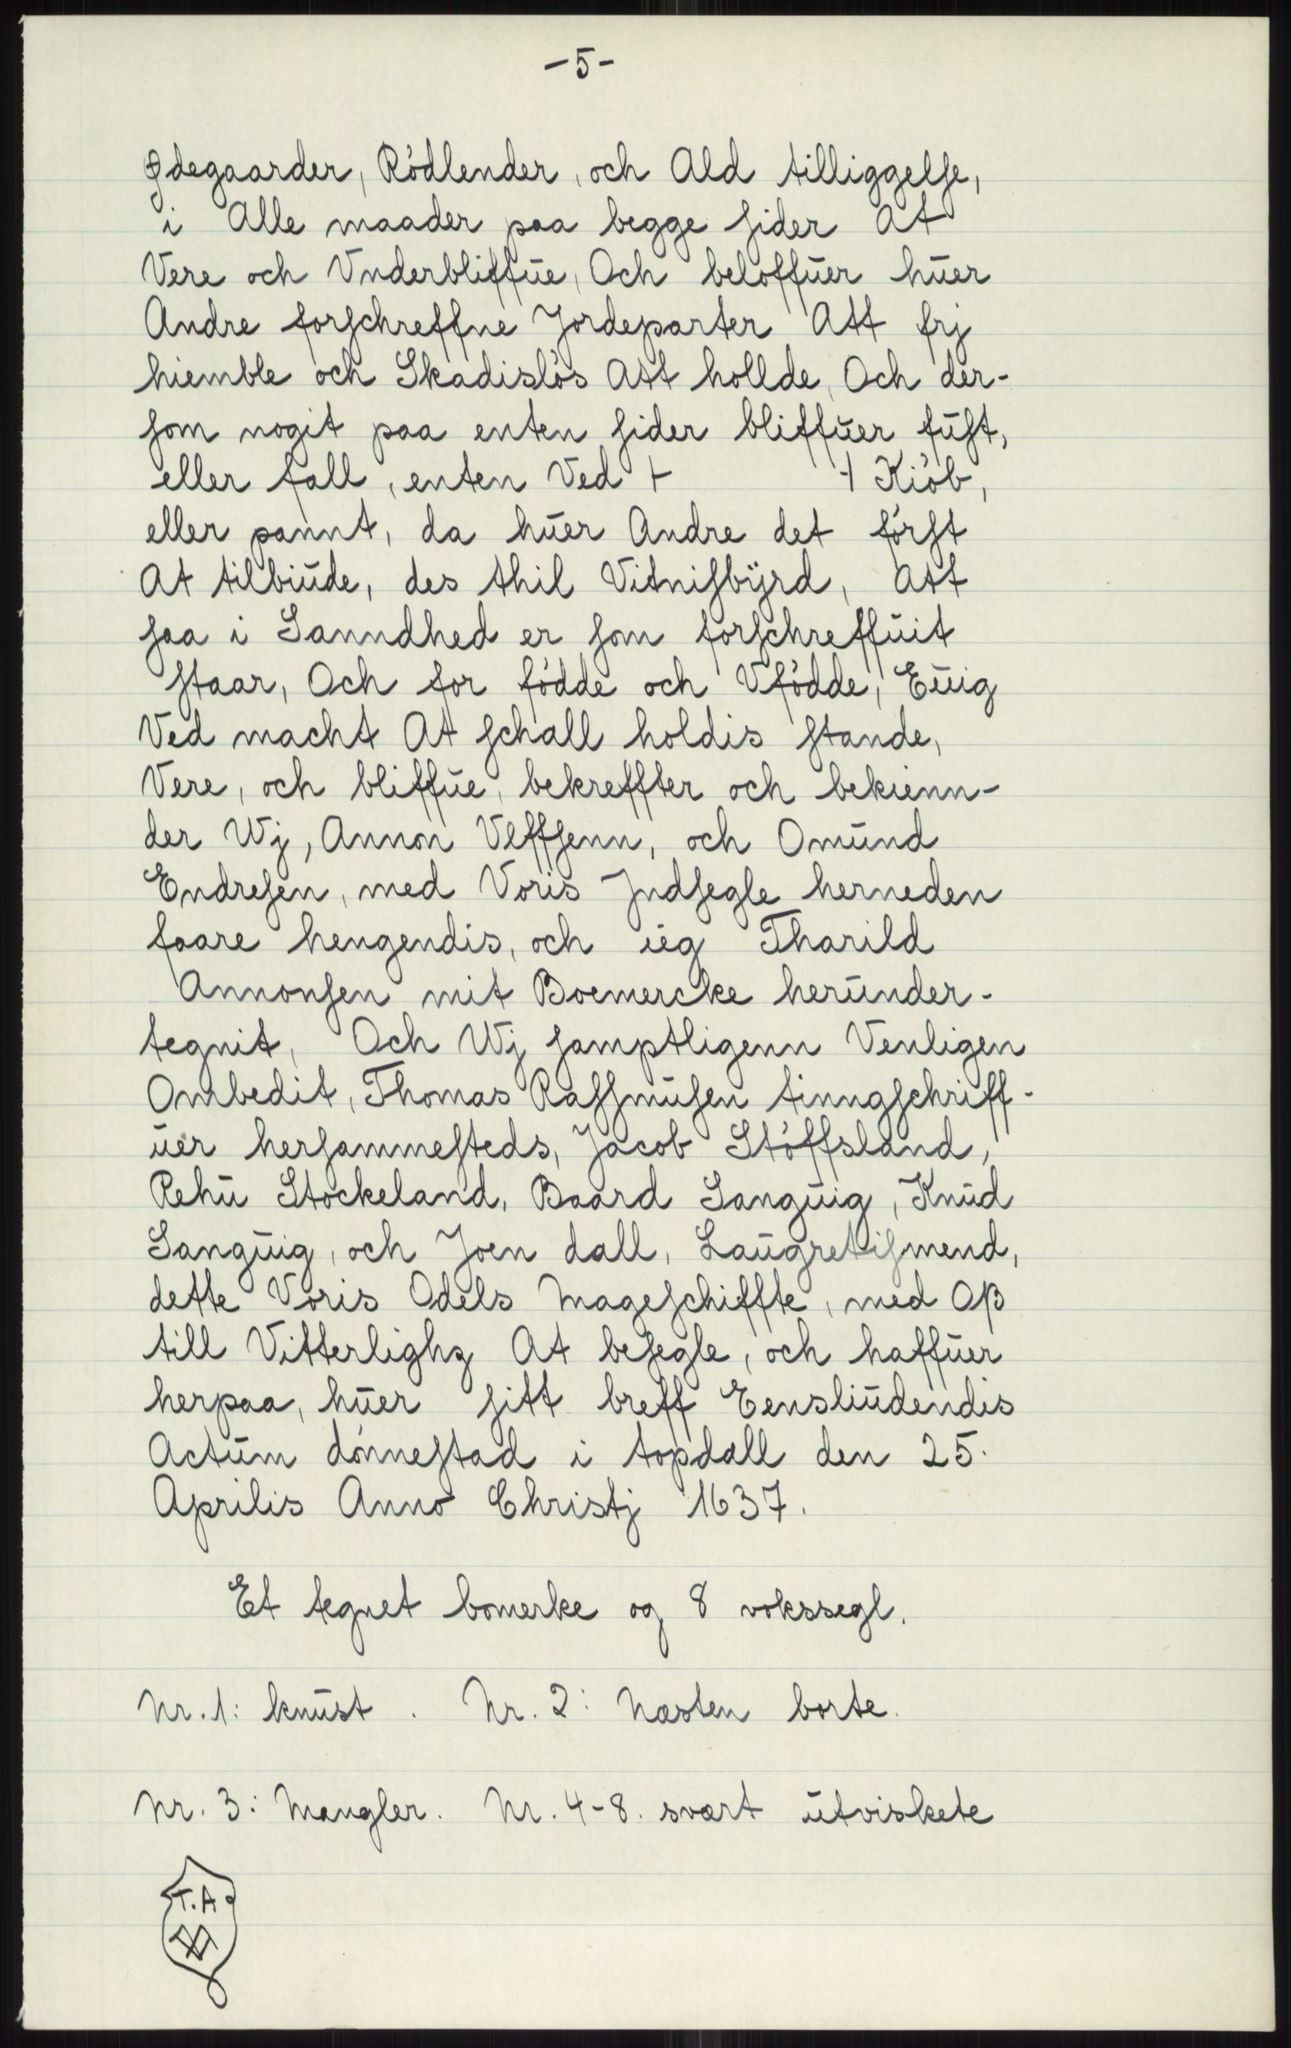 -5-
Ødegaarder, Rødlender, och Ald tilliggelse,
i Alle maader paa begge sider At
Vere och Vnderbliffue, Och beloffuer huer
Andre forschreffne Jordeparter Att frj
hiemble och Skadisløs Att hollde, Och der-
som nogit paa enten sider bliffuer fust,
eller fall, enten Ved + + Kiøb,
eller pannt, da huer Andre det først
At tilbiude, des thil Vitnisbÿrd, Att
saa i Sanndhed er som forschreffuit
staar, Och for fødde och Vfødde, Euig
Ved macht At schall holdis stande,
Vere, och bliffue, bekreffter och bekienn-
der Wj, Annon Vlffsenn, och Omund
Endresen, med Voris Jndsegle herneden
faare hengendis, och ieg Tharild
Annonsen mit Boemercke herunder-
tegnit, Och Wj samptligenn Venligen
Ombedit, Thomas Rassmusen tinngschriff-
uer hersammesteds, Jacob Støffsland,
Rehu Stockeland, Baard Sanguig, Knud
Sanguig, och Joen dall, Laugretismend,
dette Voris Odels Mageschiffte, med Oß
till Vitterlighz At besegle, och haffuer
herpaa, huer sitt breff Eensliudendis
Actum dønnestad i topdall den 25.
Aprilis Anno Christj 1637.
Et tegnet bomerke og 8 vokssegl.
Nr. 1: knust. Nr. 2: Næsten borte.
Nr. 3: Mangler. Nr. 4-8. svært utviskete
T.A.